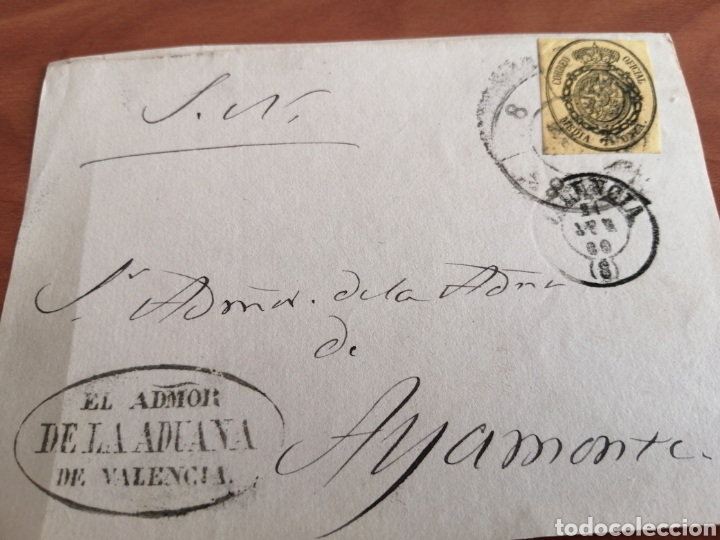 S. N.
CORREO OFICIAL
MEDIA ONZA.
8
8
VALENCIA
60
(8)
Sr Admor. de la Adna
de
Ayamonte.
EL ADMOR
DE LA ADUANA
DE VALENCIA.
todocoleccion